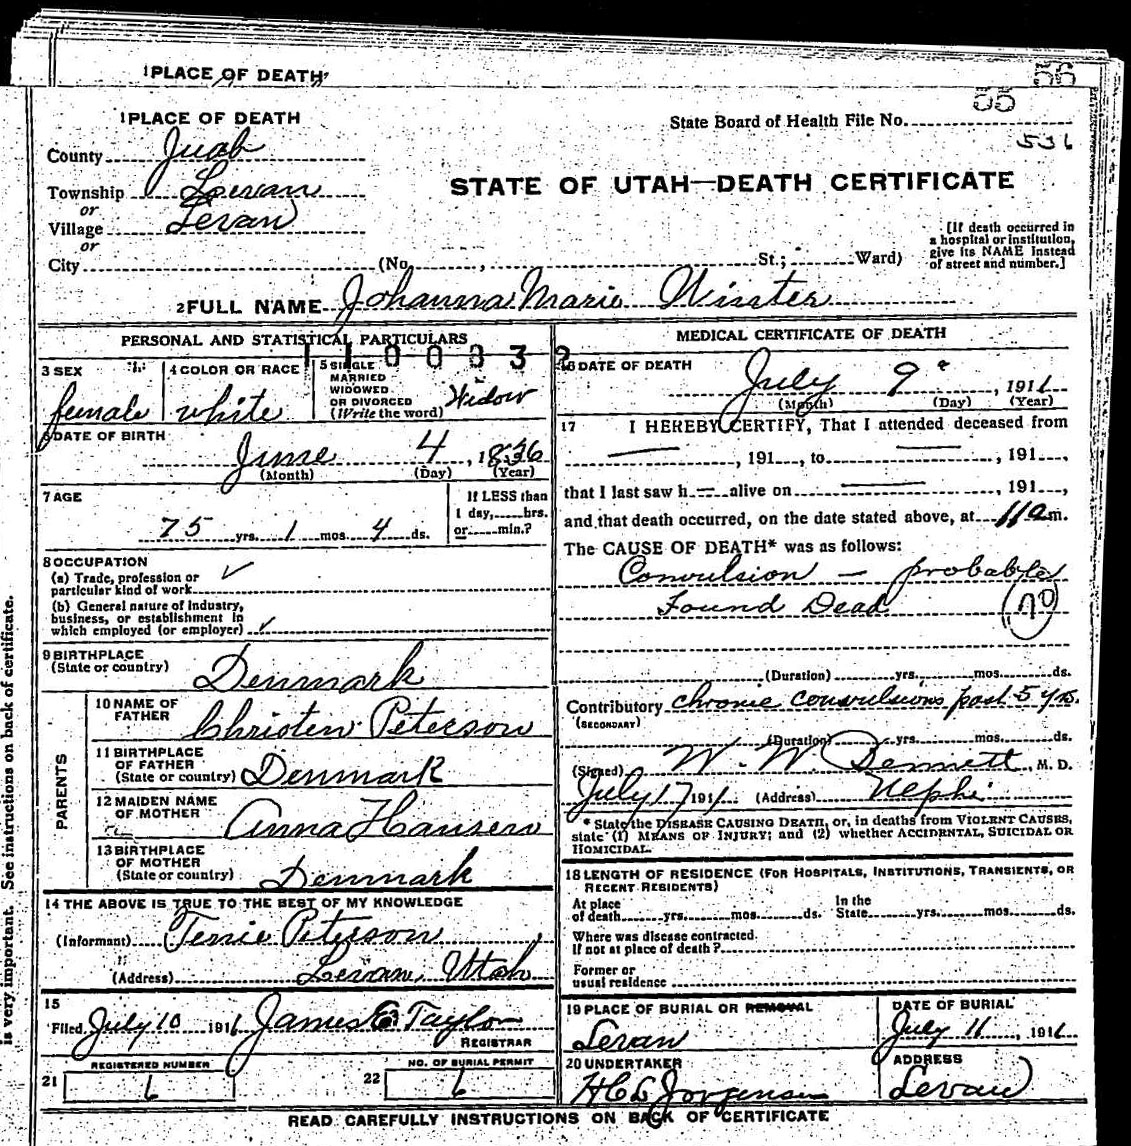 1 PLACE OF DEATH
56
55
1 PLACE OF DEATH
State Board of Health File No.
536
County Juab
Township Levan
or
Village Levan
or
City (No. , St.; Ward)
STATE OF UTAH—DEATH CERTIFICATE
[If death occurred in
a hospital or institution,
give its NAME instead
of street and number.]
2 FULL NAME Johanna Marie Winter
PERSONAL AND STATISTICAL PARTICULARS
1100332
3 SEX
female
4 COLOR OR RACE
white
5 SINGLE
MARRIED
WIDOWED
OR DIVORCED
(Write the word)
Widow
6 DATE OF BIRTH
June 4, 1836
(Month) (Day) (Year)
7 AGE
75 yrs. 1 mos. 4 ds.
If LESS than
1 day, hrs.
or min.?
8 OCCUPATION
(a) Trade, profession or
particular kind of work
(b) General nature of Industry,
business, or establishment in
which employed (or employer)
9 BIRTHPLACE
(State or country) Denmark
PARENTS
10 NAME OF
FATHER Christen Peterson
11 BIRTHPLACE
OF FATHER
(State or country) Denmark
12 MAIDEN NAME
OF MOTHER Anna Hansen
13 BIRTHPLACE
OF MOTHER
(State or country) Denmark
14 THE ABOVE IS TRUE TO THE BEST OF MY KNOWLEDGE
(Informant) Tenie Peterson
(Address) Levan, Utah
15
Filed July 10 1911 James Taylor
REGISTRAR
REGISTERED NUMBER
21 6
NO. OF BURIAL PERMIT
22 6
MEDICAL CERTIFICATE OF DEATH
16 DATE OF DEATH
July 9, 1911
(Month) (Day) (Year)
17 I HEREBY CERTIFY, That I attended deceased from
— , 191 , to — , 191 ,
that I last saw h — alive on — , 191 ,
and that death occurred, on the date stated above, at 11 a m.
The CAUSE OF DEATH* was as follows:
Convulsion — probable
Found Dead 70
(Duration) yrs. mos. ds.
Contributory chronic convulsions past 5 yrs.
(SECONDARY)
(Duration) yrs. mos. ds.
(Signed) W. W. Bennett, M. D.
July 17 1911 (Address) Nephi
* State the DISEASE CAUSING DEATH, or, in deaths from VIOLENT CAUSES,
state (1) MEANS OF INJURY; and (2) whether ACCIDENTAL, SUICIDAL OR
HOMICIDAL.
18 LENGTH OF RESIDENCE (FOR HOSPITALS, INSTITUTIONS, TRANSIENTS, OR
RECENT RESIDENTS)
At place
of death yrs. mos. ds.
In the
State yrs. mos. ds.
Where was disease contracted.
If not at place of death?
Former or
usual residence
19 PLACE OF BURIAL OR REMOVAL
Levan
DATE OF BURIAL
July 11, 1911
20 UNDERTAKER
H C L Jorgensen
ADDRESS
Levan
READ CAREFULLY INSTRUCTIONS ON BACK OF CERTIFICATE
is very important. See instructions on back of certificate.